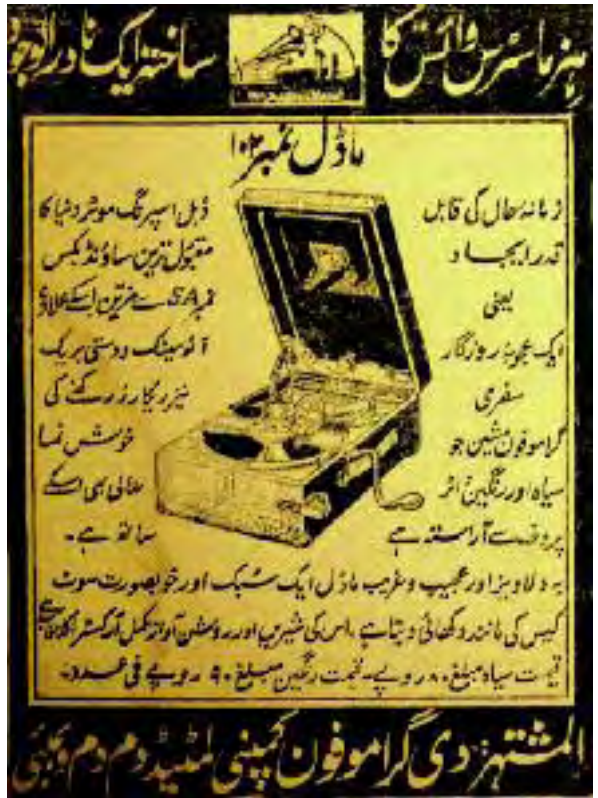 ہز ماسٹرس وائس کا ساختہ ایک نادر الوجود
ماڈل نمبر ۱۰۲
زمانۂ حال کی قابل
قدر ایجاد
یعنی
ایک عجوبۂ روزگار
سفری
گراموفون مشین جو
سیاہ اور رنگین اثر
پروف سے آراستہ ہے
ڈبل اسپرنگ موٹر دنیا کا
مقبول ترین ساؤنڈ بکس
نمبر 5A سے مزین اسکے علاوہ
آٹومیٹک و دستی بریک
نیز ریکارڈ رکھنے کی
خوش نما
بھی اسکے
ساتھ ہے۔
یہ دلاویز اور عجیب و غریب ماڈل ایک سُبک اور خوبصورت سوٹ
کیس کی مانند دکھائی دیتا ہے۔ اس کی شیریں اور روشن آواز مکمل آرکسٹرا کا
قیمت سیاہ مبلغ ۸۰ روپے۔ قیمت رنگین مبلغ ۹۰ روپے فی عدد۔
المشتہر دی گراموفون کمپنی لمٹیڈ دم دم و بمبئی